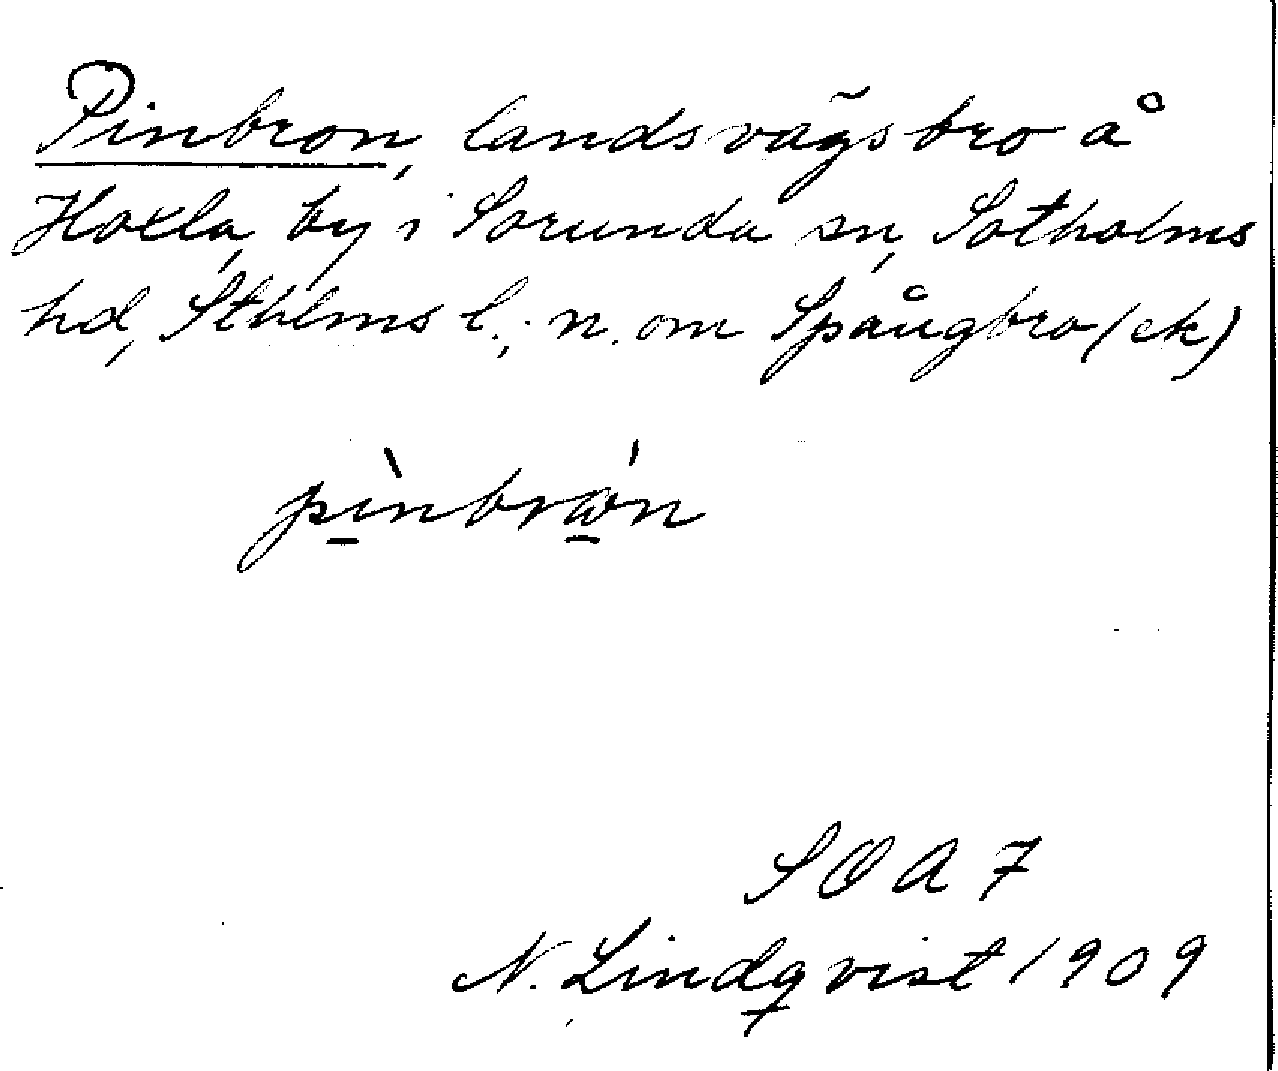 Pinbron, landsvägsbro å
Hoxla, by i Sorunda sn, Sotholms
hd, Sthlms l.; n. om Spångbro (ek)
pìnbrǿn
SOA 7
N. Lindqvist 1909